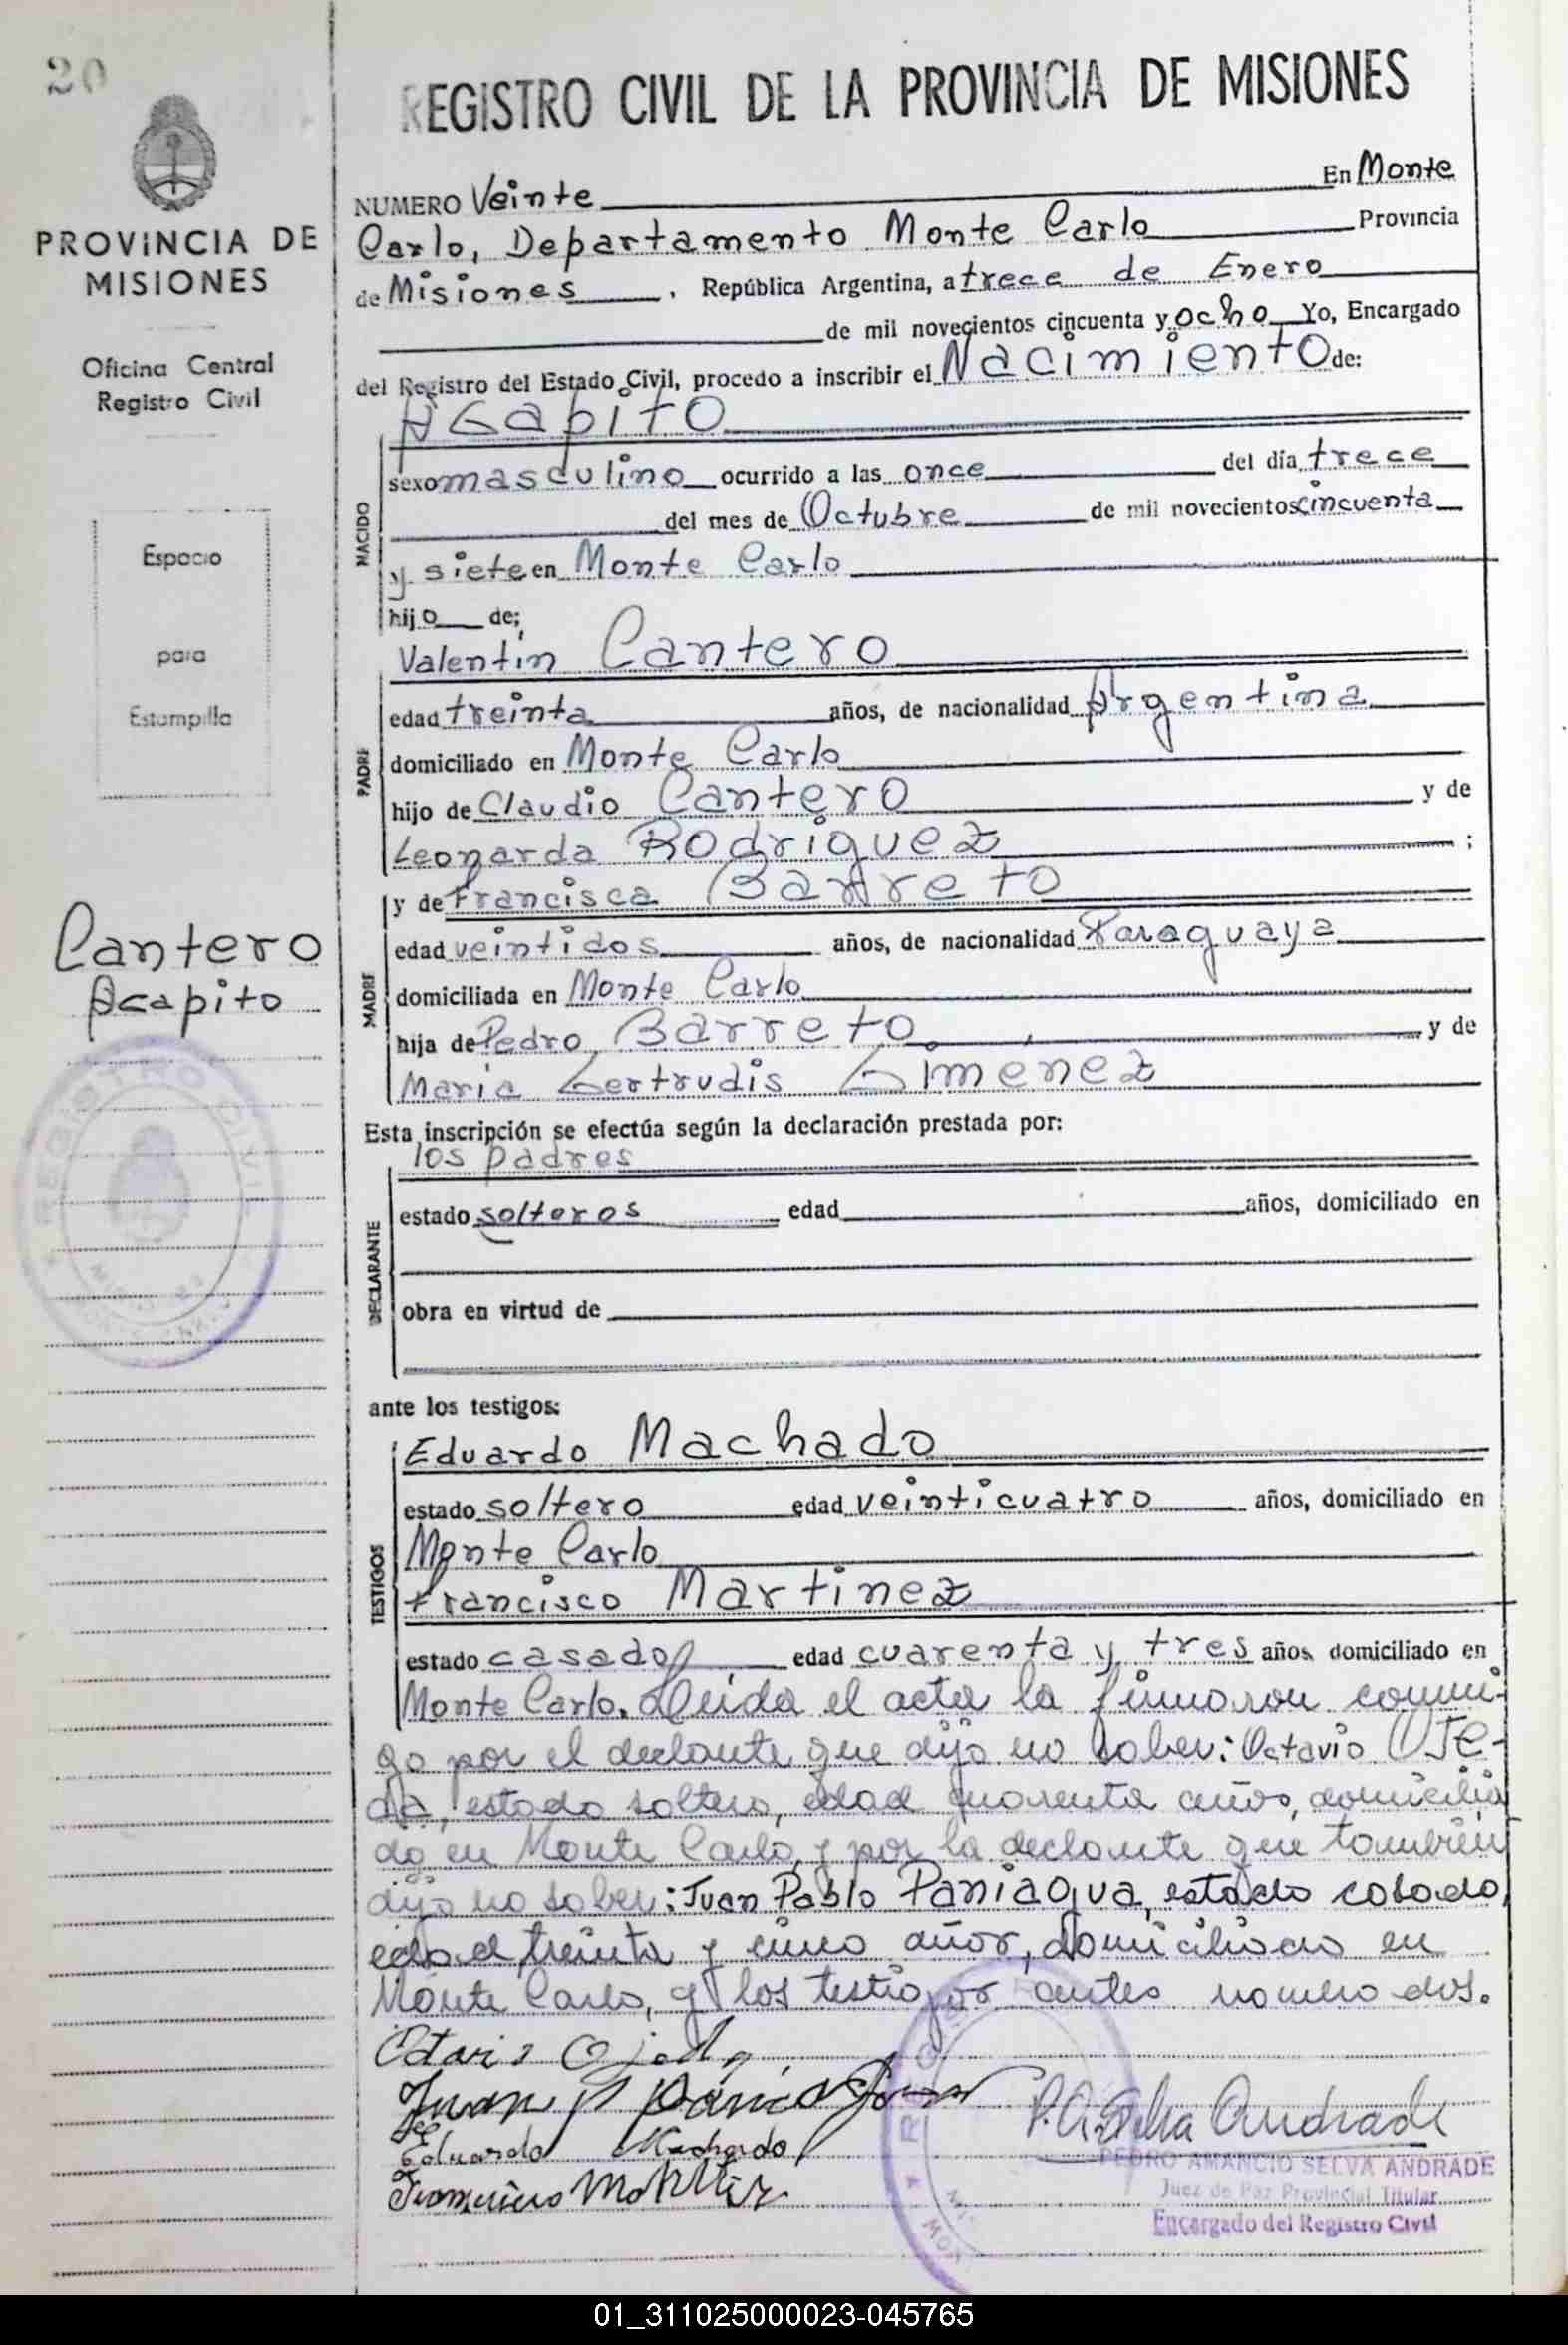 20
PROVINCIA DE
MISIONES
Oficina Central
Registro Civil
Espacio
para
Estampilla
Cantero
Agapito
REGISTRO CIVIL
REGISTRO CIVIL DE LA PROVINCIA DE MISIONES
NUMERO Veinte En Monte
Carlo, Departamento Monte Carlo Provincia
de Misiones, República Argentina, a trece de Enero
de mil novecientos cincuenta y ocho Yo, Encargado
del Registro del Estado Civil, procedo a inscribir el Nacimiento de:
NACIDO
Agapito
sexo masculino ocurrido a las once del día trece
del mes de Octubre de mil novecientos cincuenta
y siete en Monte Carlo
hijo de;
PADRE
Valentín Cantero
edad treinta años, de nacionalidad Argentina
domiciliado en Monte Carlo
hijo de Claudio Cantero y de
Leonarda Rodriguez ;
MADRE
y de Francisca Barreto
edad veintidos años, de nacionalidad Paraguaya
domiciliada en Monte Carlo
hija de Pedro Barreto y de
María Gertrudis Giménez
Esta inscripción se efectúa según la declaración prestada por:
DECLARANTE
los padres
estado solteros edad años, domiciliado en
obra en virtud de
ante los testigos:
TESTIGOS
Eduardo Machado
estado soltero edad veinticuatro años, domiciliado en
Monte Carlo
Francisco Martinez
estado casado edad cuarenta y tres años, domiciliado en
Monte Carlo. Leída el acta la firmaron conmi-
go por el declarante que dijo no saber: Octavio Oje-
da, estado soltero, edad cuarenta años, domicilia
do en Monte Carlo, y por la declarante que también
dijo no saber: Juan Pablo Paniagua, estado casado,
edad treinta y cinco años, domiciliado en
Monte Carlo, y los testigos antes nombrados.
Octavio Ojeda
Juan P Paniagua
Eduardo Machado
Francisco Martinez
P. A. Selva Andrade
PEDRO AMANCIO SELVA ANDRADE
Juez de Paz Provincial Titular
Encargado del Registro Civil
01_311025000023-045765